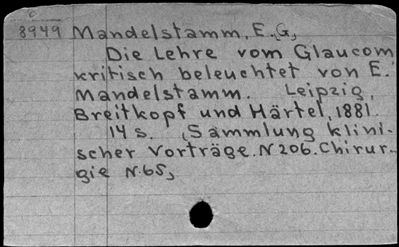 8949 Mandelstamm, E. G,
Die Lehre vom Glaucom
kritisch beleuchtet von E.
Mandelstamm. Leipzig,
Breitkopf und Härtel, 1881.
14 s. (Sammlung klini-
scher Vorträge. N 206. Chirur-
gie N. 65,